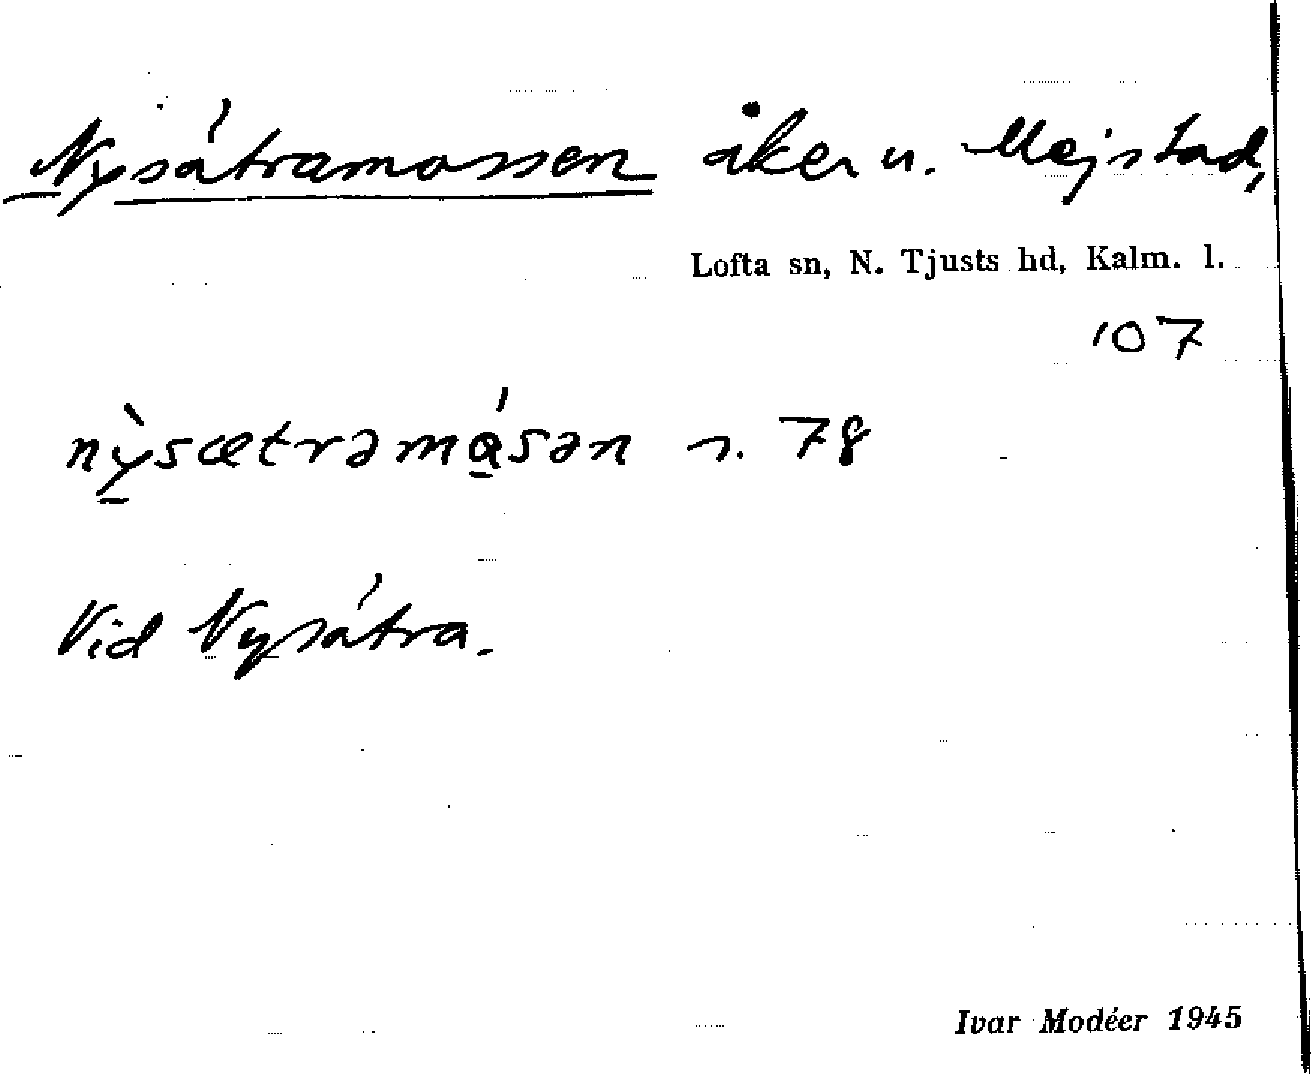 Nysátramossen åker u. Mejstad,
Lofta sn, N. Tjusts hd, Kalm. l.
107
nỳsætrəmásən n. 78
Vid Nysátra.
Ivar Modéer 1945